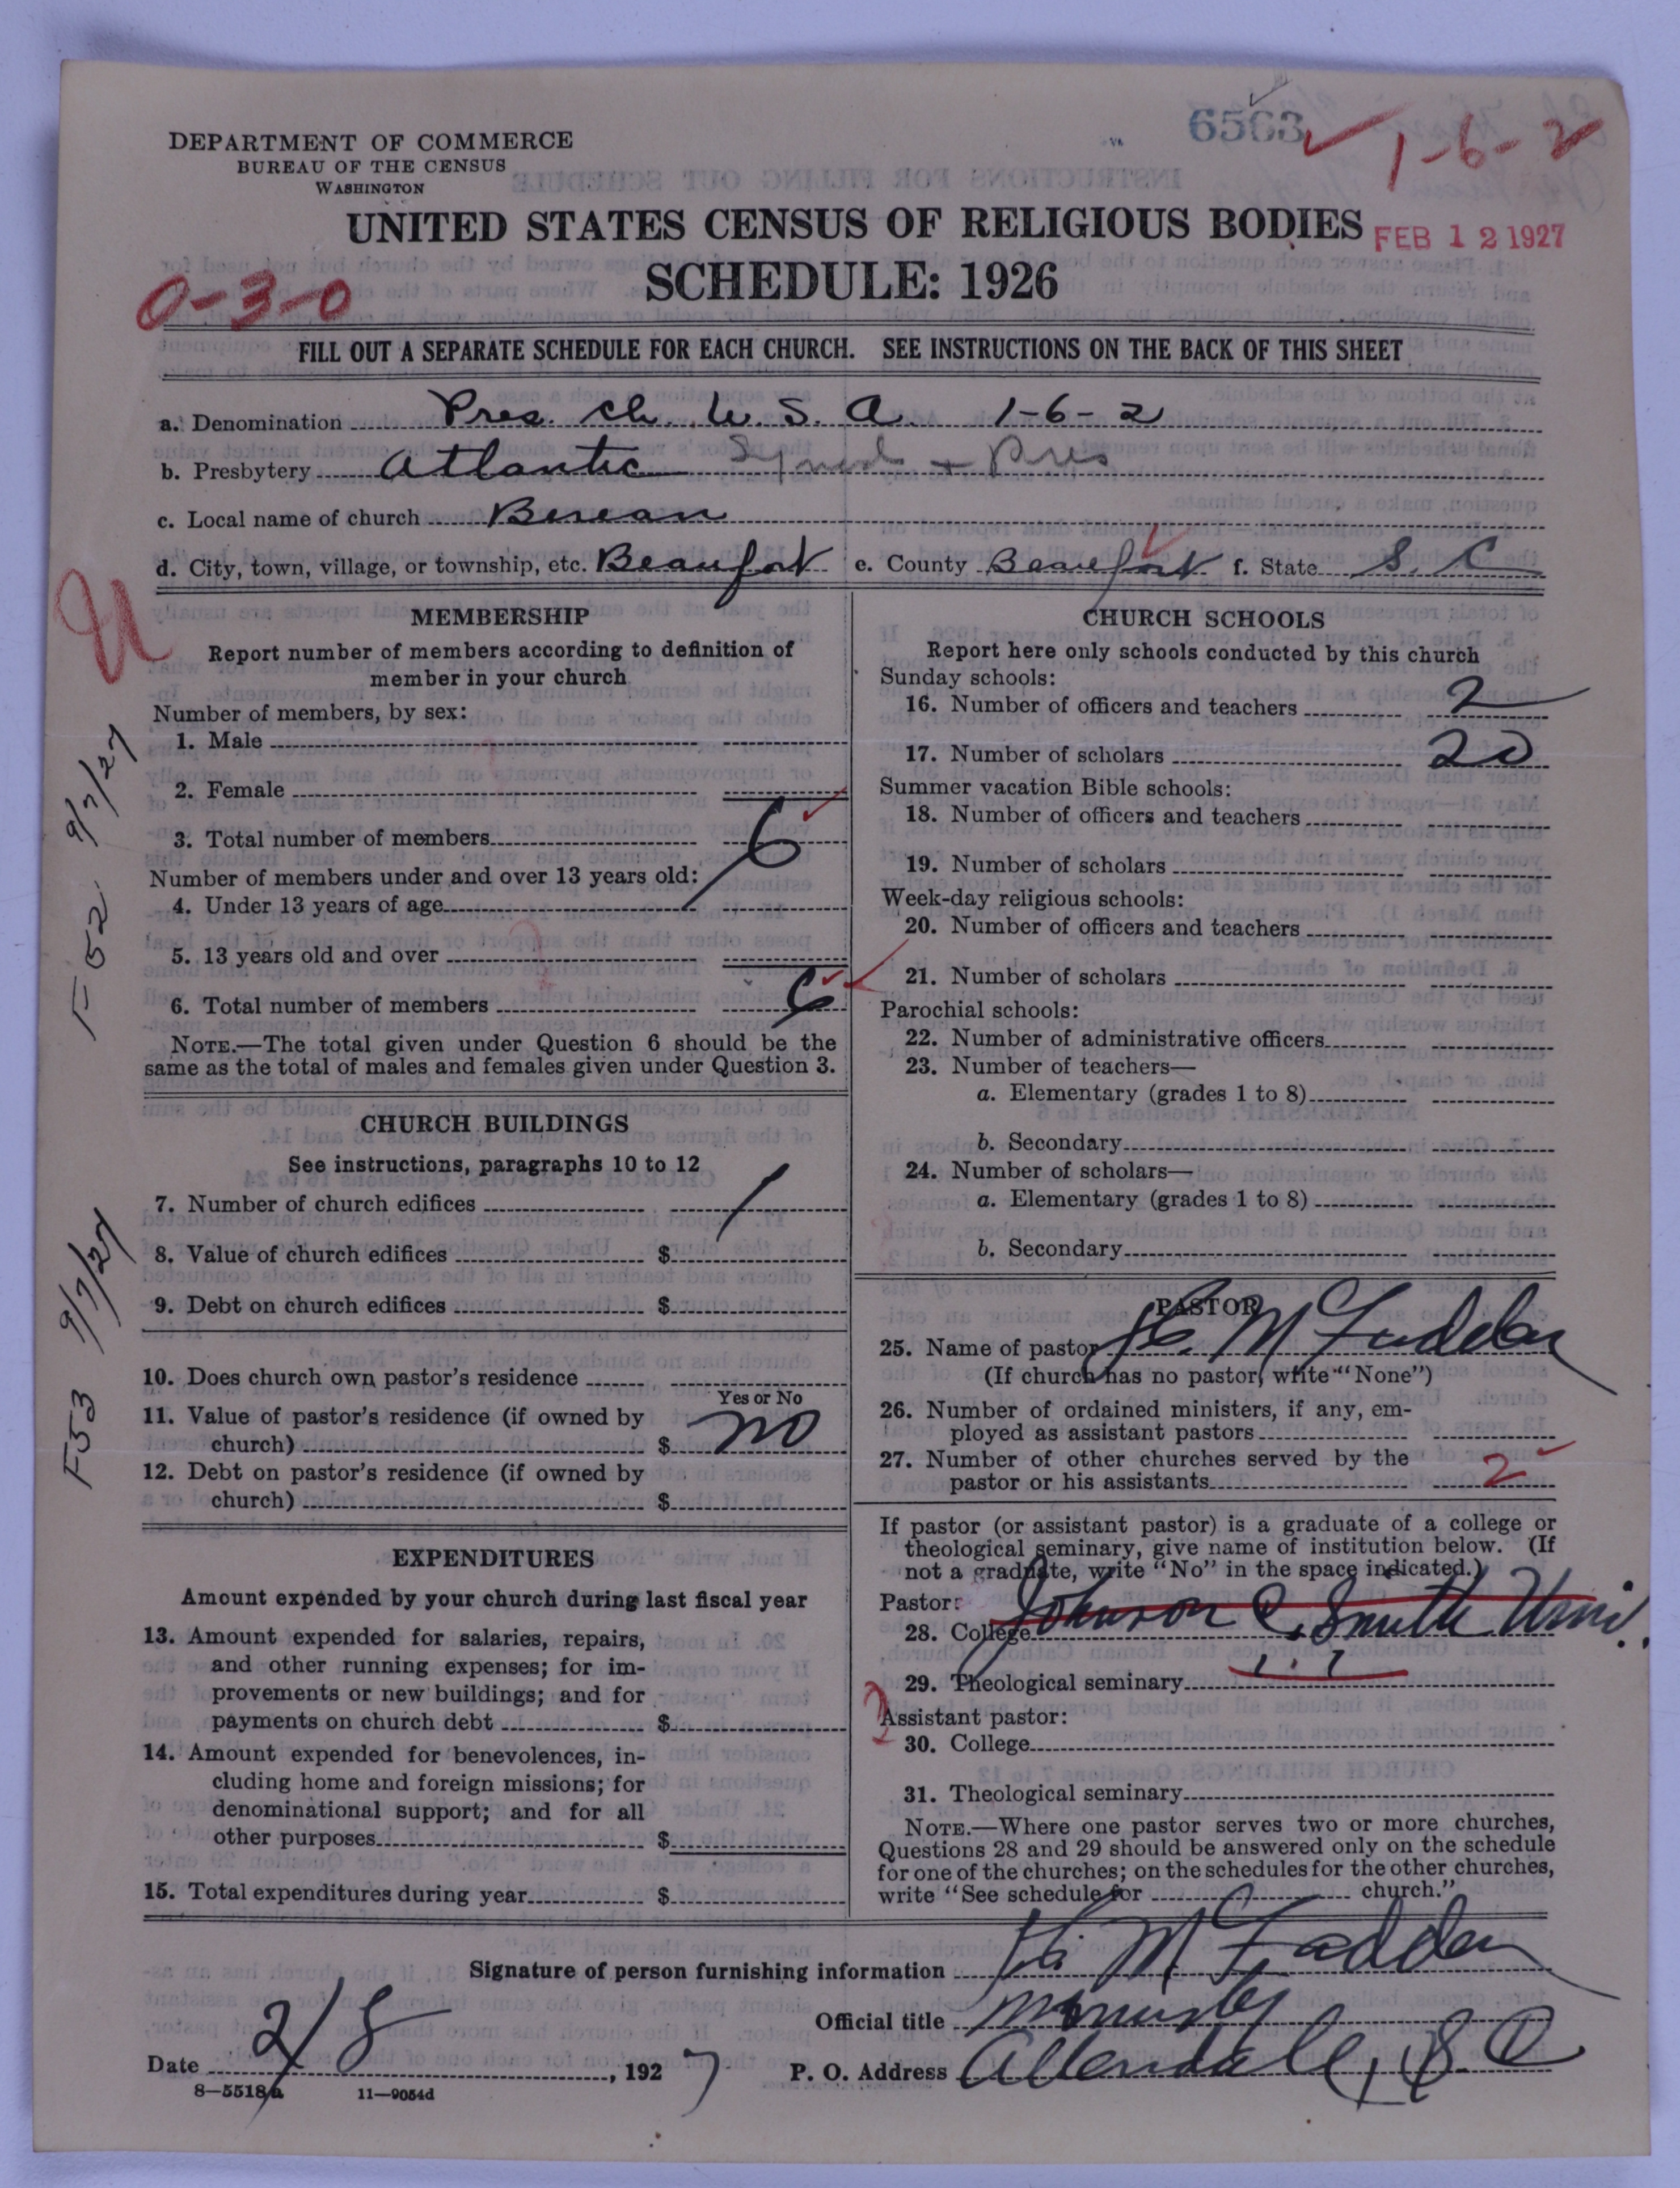 6563
1-6-2
DEPARTMENT OF COMMERCE
BUREAU OF THE CENSUS
WASHINGTON
UNITED STATES CENSUS OF RELIGIOUS BODIES
FEB 12 1927
SCHEDULE: 1926
0-3-0
FILL OUT A SEPARATE SCHEDULE FOR EACH CHURCH. SEE INSTRUCTIONS ON THE BACK OF THIS SHEET
a. Denomination Pres. Ch. U. S. A. 1-6-2
b. Presbytery Atlantic Synod + Pres
c. Local name of church Berean
d. City, town, village, or township, etc. Beaufort e. County Beaufort f. State S. C.
MEMBERSHIP
Report number of members according to definition of
member in your church
Number of members, by sex:
1. Male
2. Female
3. Total number of members 6
Number of members under and over 13 years old:
4. Under 13 years of age
5. 13 years old and over
6. Total number of members 6
NOTE.—The total given under Question 6 should be the
same as the total of males and females given under Question 3.
CHURCH BUILDINGS
See instructions, paragraphs 10 to 12
7. Number of church edifices 1
8. Value of church edifices $
9. Debt on church edifices $
10. Does church own pastor's residence
Yes or No
11. Value of pastor's residence (if owned by
church) $ no
12. Debt on pastor's residence (if owned by
church) $
EXPENDITURES
Amount expended by your church during last fiscal year
13. Amount expended for salaries, repairs,
and other running expenses; for im-
provements or new buildings; and for
payments on church debt $
14. Amount expended for benevolences, in-
cluding home and foreign missions; for
denominational support; and for all
other purposes $
15. Total expenditures during year $
F52 9/7/27
F53 9/7/27
CHURCH SCHOOLS
Report here only schools conducted by this church
Sunday schools:
16. Number of officers and teachers 2
17. Number of scholars 20
Summer vacation Bible schools:
18. Number of officers and teachers
19. Number of scholars
Week-day religious schools:
20. Number of officers and teachers
21. Number of scholars
Parochial schools:
22. Number of administrative officers
23. Number of teachers—
a. Elementary (grades 1 to 8)
b. Secondary
24. Number of scholars—
a. Elementary (grades 1 to 8)
b. Secondary
PASTOR
25. Name of pastor McFadden
(If church has no pastor, write "None")
26. Number of ordained ministers, if any, em-
ployed as assistant pastors
27. Number of other churches served by the
pastor or his assistants 2
If pastor (or assistant pastor) is a graduate of a college or
theological seminary, give name of institution below. (If
not a graduate, write "No" in the space indicated.)
Pastor:
28. College Johnson C. Smith Uni.
29. Theological seminary
Assistant pastor:
30. College
31. Theological seminary
NOTE.—Where one pastor serves two or more churches,
Questions 28 and 29 should be answered only on the schedule
for one of the churches; on the schedules for the other churches,
write "See schedule for church."
Signature of person furnishing information McFadden
Official title Minister
Date 2/8, 1927 P. O. Address Allendale, S C
8—5518a 11—9054d